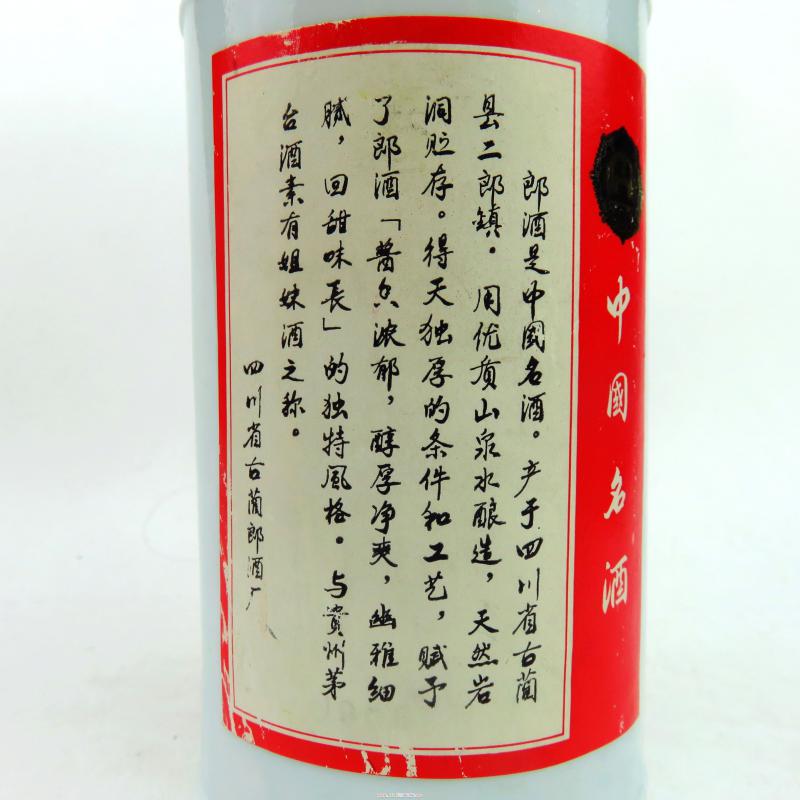 中國名酒
郎酒是中國名酒。产于四川省古蔺
县二郎鎮．用优质山泉水酿造，天然岩
洞贮存。得天独厚的条件和工艺，赋予
了郎酒「酱香浓郁，醇厚净爽，幽雅细
腻，回甜味長」的独特風格。与貴州茅
台酒素有姐妹酒之称。
四川省古蔺郎酒厂